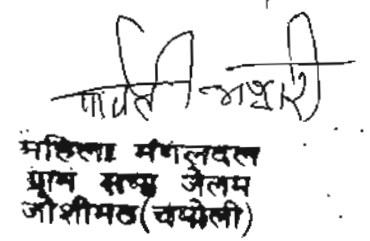 पार्वती
महिला मंगलदल
ग्राम सभा जेलम
जोशीमठ (चमोली)